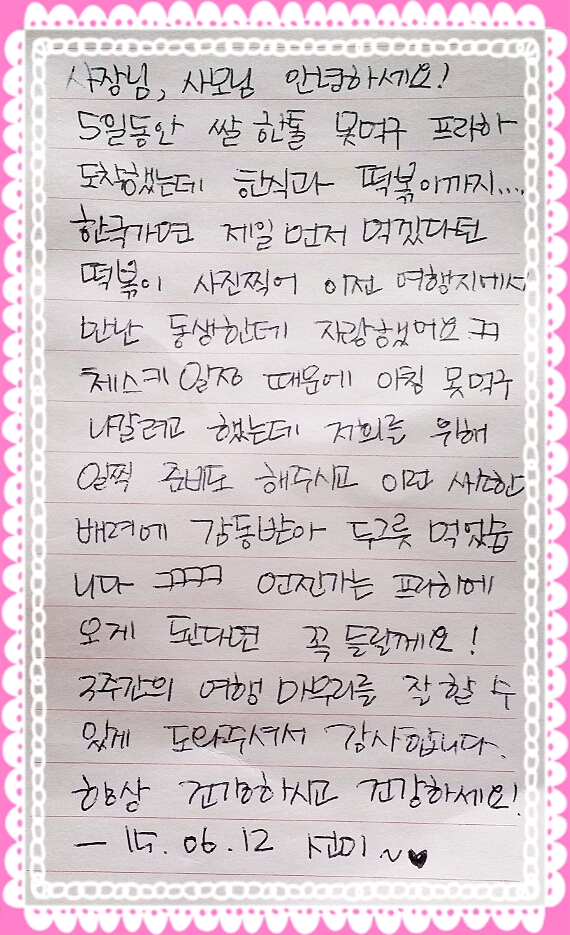 사장님, 사모님 안녕하세요!
5일동안 쌀 한톨 못먹구 프라하
도착했는데 한식과 떡볶이까지....
한국가면 제일 먼저 먹겠다던
떡볶이 사진찍어 이전 여행지에서
만난 동생한테 자랑했어요 ㅋㅋ
체스키 일정 때문에 아침 못먹구
나갈려고 했는데 저희를 위해
일찍 준비도 해주시고 이런 세심한
배려에 감동받아 두그릇 먹었습
니다 ㅋㅋㅋㅋ 언젠가는 프라하에
오게 된다면 꼭 들릴께요!
3주간의 여행 마무리를 잘 할 수
있게 도와주셔서 감사합니다.
항상 건강하시고 건강하세요!
- 15. 06. 12 선미~♥